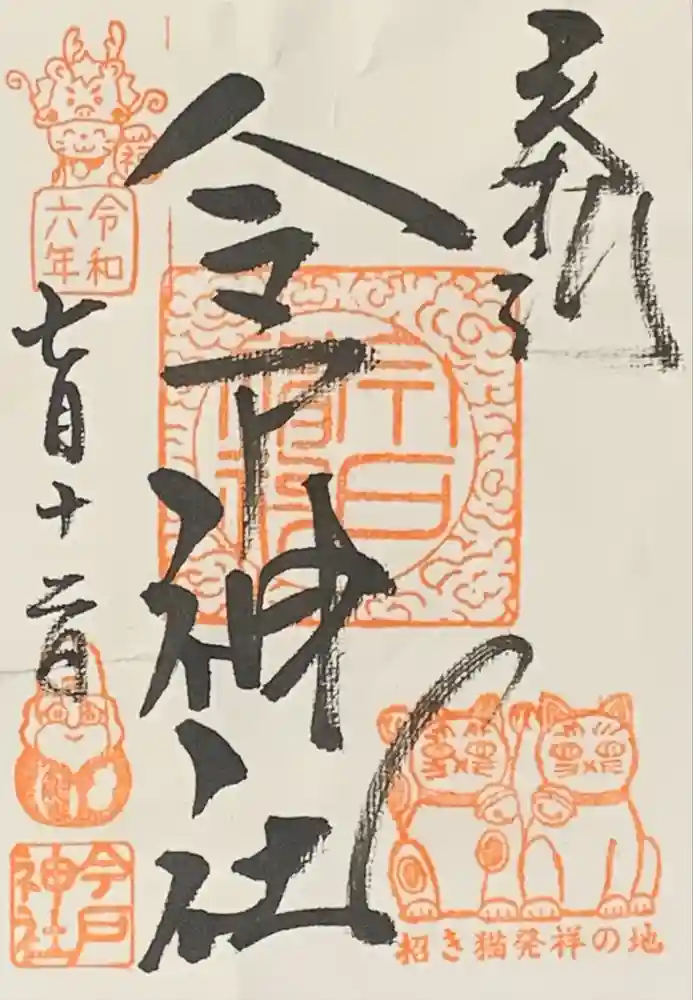 奉拝
今戸神社
福
令和
六年
七月十二日
今戸
神社
招き猫発祥の地